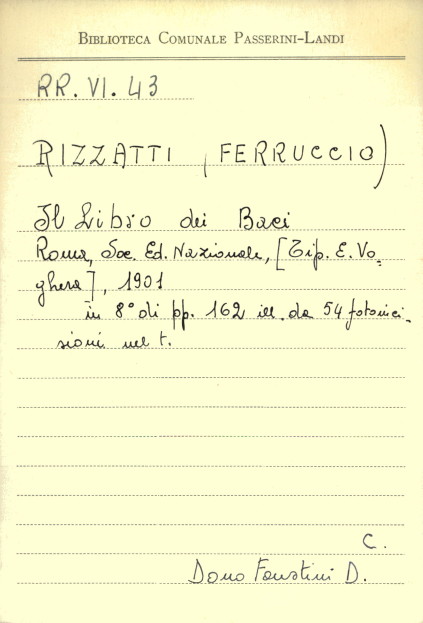 BIBLIOTECA COMUNALE PASSERINI-LANDI
RR. VI. 43
RIZZATTI (FERRUCCIO)
Il Libro dei Baci
Roma, Soc. Ed. Nazionale, [Tip. E. Vo-
ghera], 1901
in 8° di pp. 162 ill. da 54 fotoinci-
sioni nel t.
C.
Dono Faustini D.